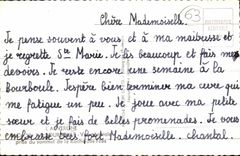 63
Chère Mademoiselle.
Je pense souvent à vous et à ma maitresse et
je regrette Ste Marie. Je lis beaucoup et fais mes
devoirs. Je reste encore une semaine à la
Bourboule. J'espère bien terminer ma cure qui
me fatigue un peu. Je joue avec ma petite
sœur et je fais de belles promenades. Je vous
embrasse très fort Mademoiselle. chantal.